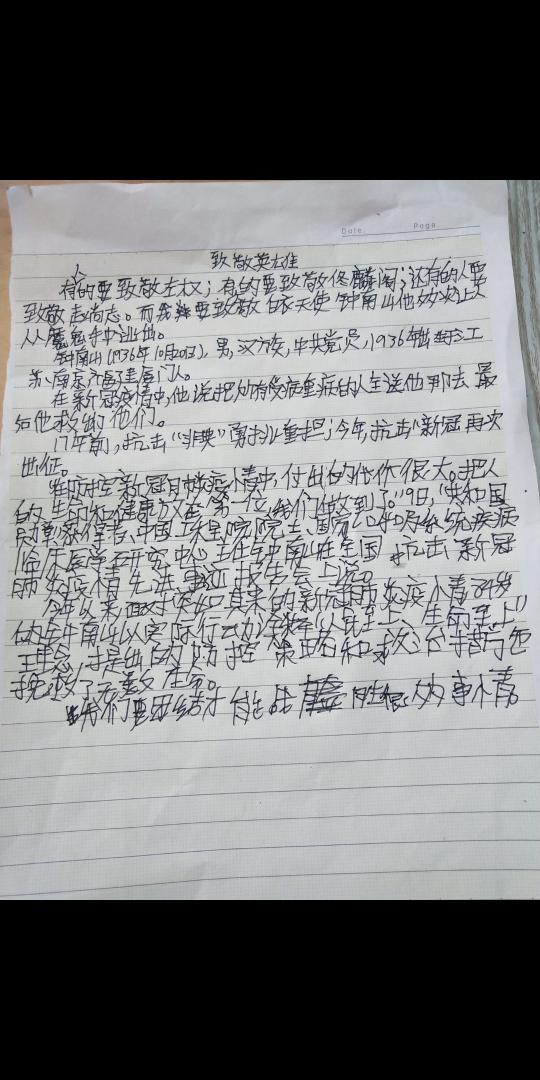 Date. Page
致敬英雄
人
有的要致敬左权；有的要致敬佟麟阁；还有的人要
致敬赵尚志。而我要致敬白衣天使钟南山他次次让人
从魔鬼手中逃出。
钟南山(1936年10月20日)，男，汉族，中共党员，1936年出生江
苏南京，福建厦门人。
在新冠疫情中，他说把所有重病的人全送他那去 最
后他救治他们。
17年前，抗击“非典”勇挑重担；今年，抗击“新冠 再次
出征。
付出的代价很大。把人
的生命和健康放在第一位，我们做到了。”9日，“共和国
勋章”获得者、中国工程院院士、国家呼吸系统疾病
临床医学研究中心主任钟南山在全国 抗击 新冠
肺炎疫情先进事迹报告会上说。
今年以来，面对突如其来的新冠肺炎疫情，84岁
的钟南山以实际行动诠释“人民至上、生命至上”
理念，提出的防控 策略和救治措施
挽救了无数生命。
我们要团结才能战胜很大的事情。